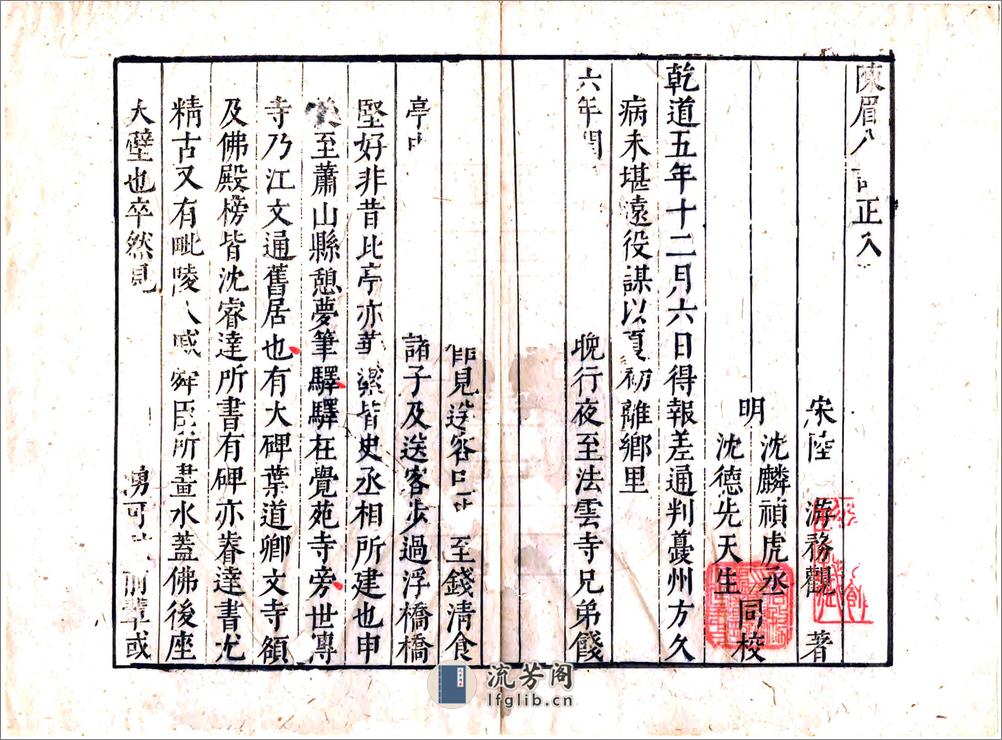 陳眉 正入
宋陸 游務觀 著
沈麟禎虎丞
明 同校
沈德先天生
乾道五年十二月六日得報差通判夔州方久
病未堪遠役謀以夏初離鄉里
六年閏 晚行夜至法雲寺兄弟餞
見送客 至錢清食
亭 諸子及送客步過浮橋橋
堅好非昔比亭亦華 皆史丞相所建也申
至蕭山縣憩夢筆驛驛在覺苑寺旁世傳
寺乃江文通舊居也有大碑葉道卿文寺額
及佛殿榜皆沈睿達所書有碑亦睿達書尤
精古又有毗陵人戚舜臣所畫水蓋佛後座
大壁也卒然見 湧可 前輩或
流芳阁
lfglib.cn